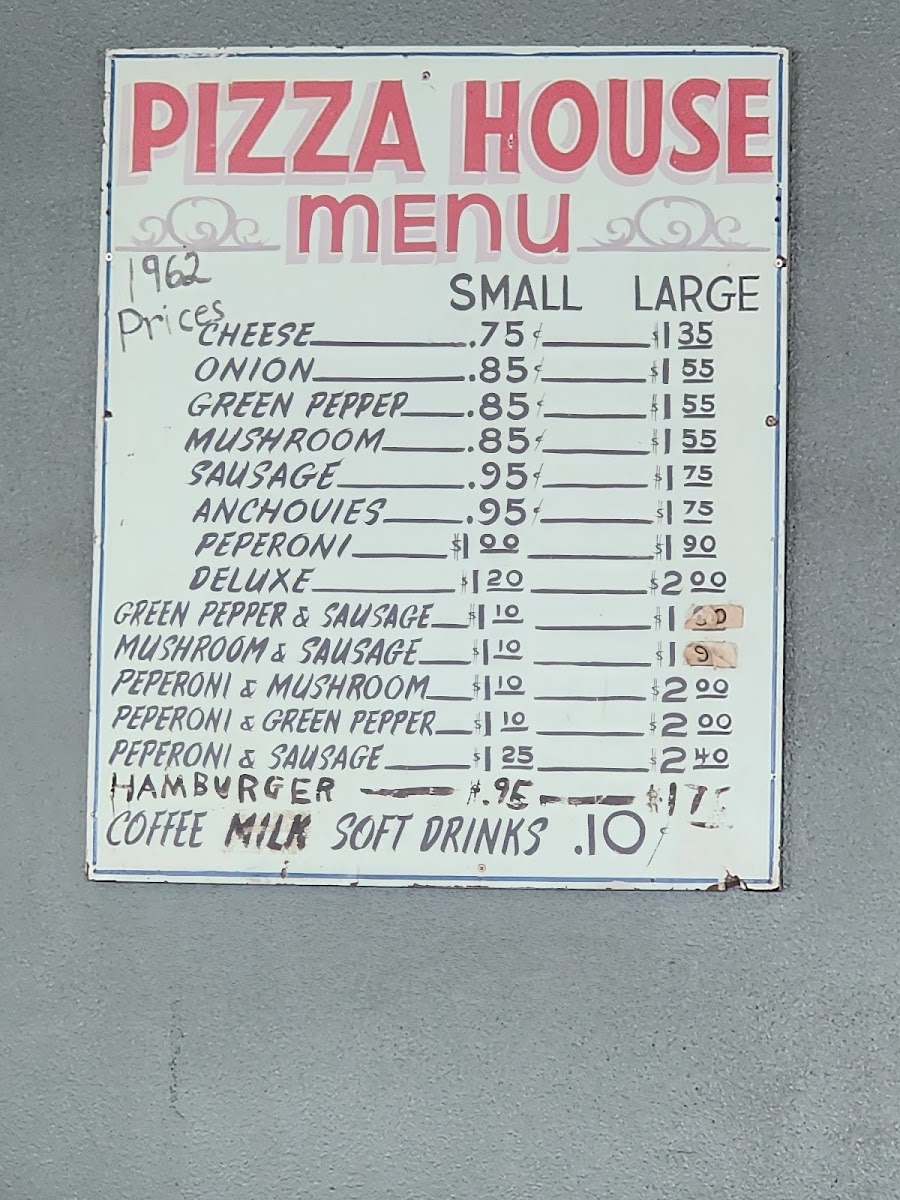 PIZZA HOUSE
MENU
1962
Prices
SMALL LARGE
CHEESE .75¢ $1 35
ONION .85¢ $1 55
GREEN PEPPER .85¢ $1 55
MUSHROOM .85¢ $1 55
SAUSAGE .95¢ $1 75
ANCHOVIES .95¢ $1 75
PEPERONI $1 00 $1 90
DELUXE $1 20 $2 00
GREEN PEPPER & SAUSAGE $1 10 $1
MUSHROOM & SAUSAGE $1 10 $1 9
PEPERONI & MUSHROOM $1 10 $2 00
PEPERONI & GREEN PEPPER $1 10 $2 00
PEPERONI & SAUSAGE $1 25 $2 40
HAMBURGER $.95 $1 75
COFFEE MILK SOFT DRINKS .10¢